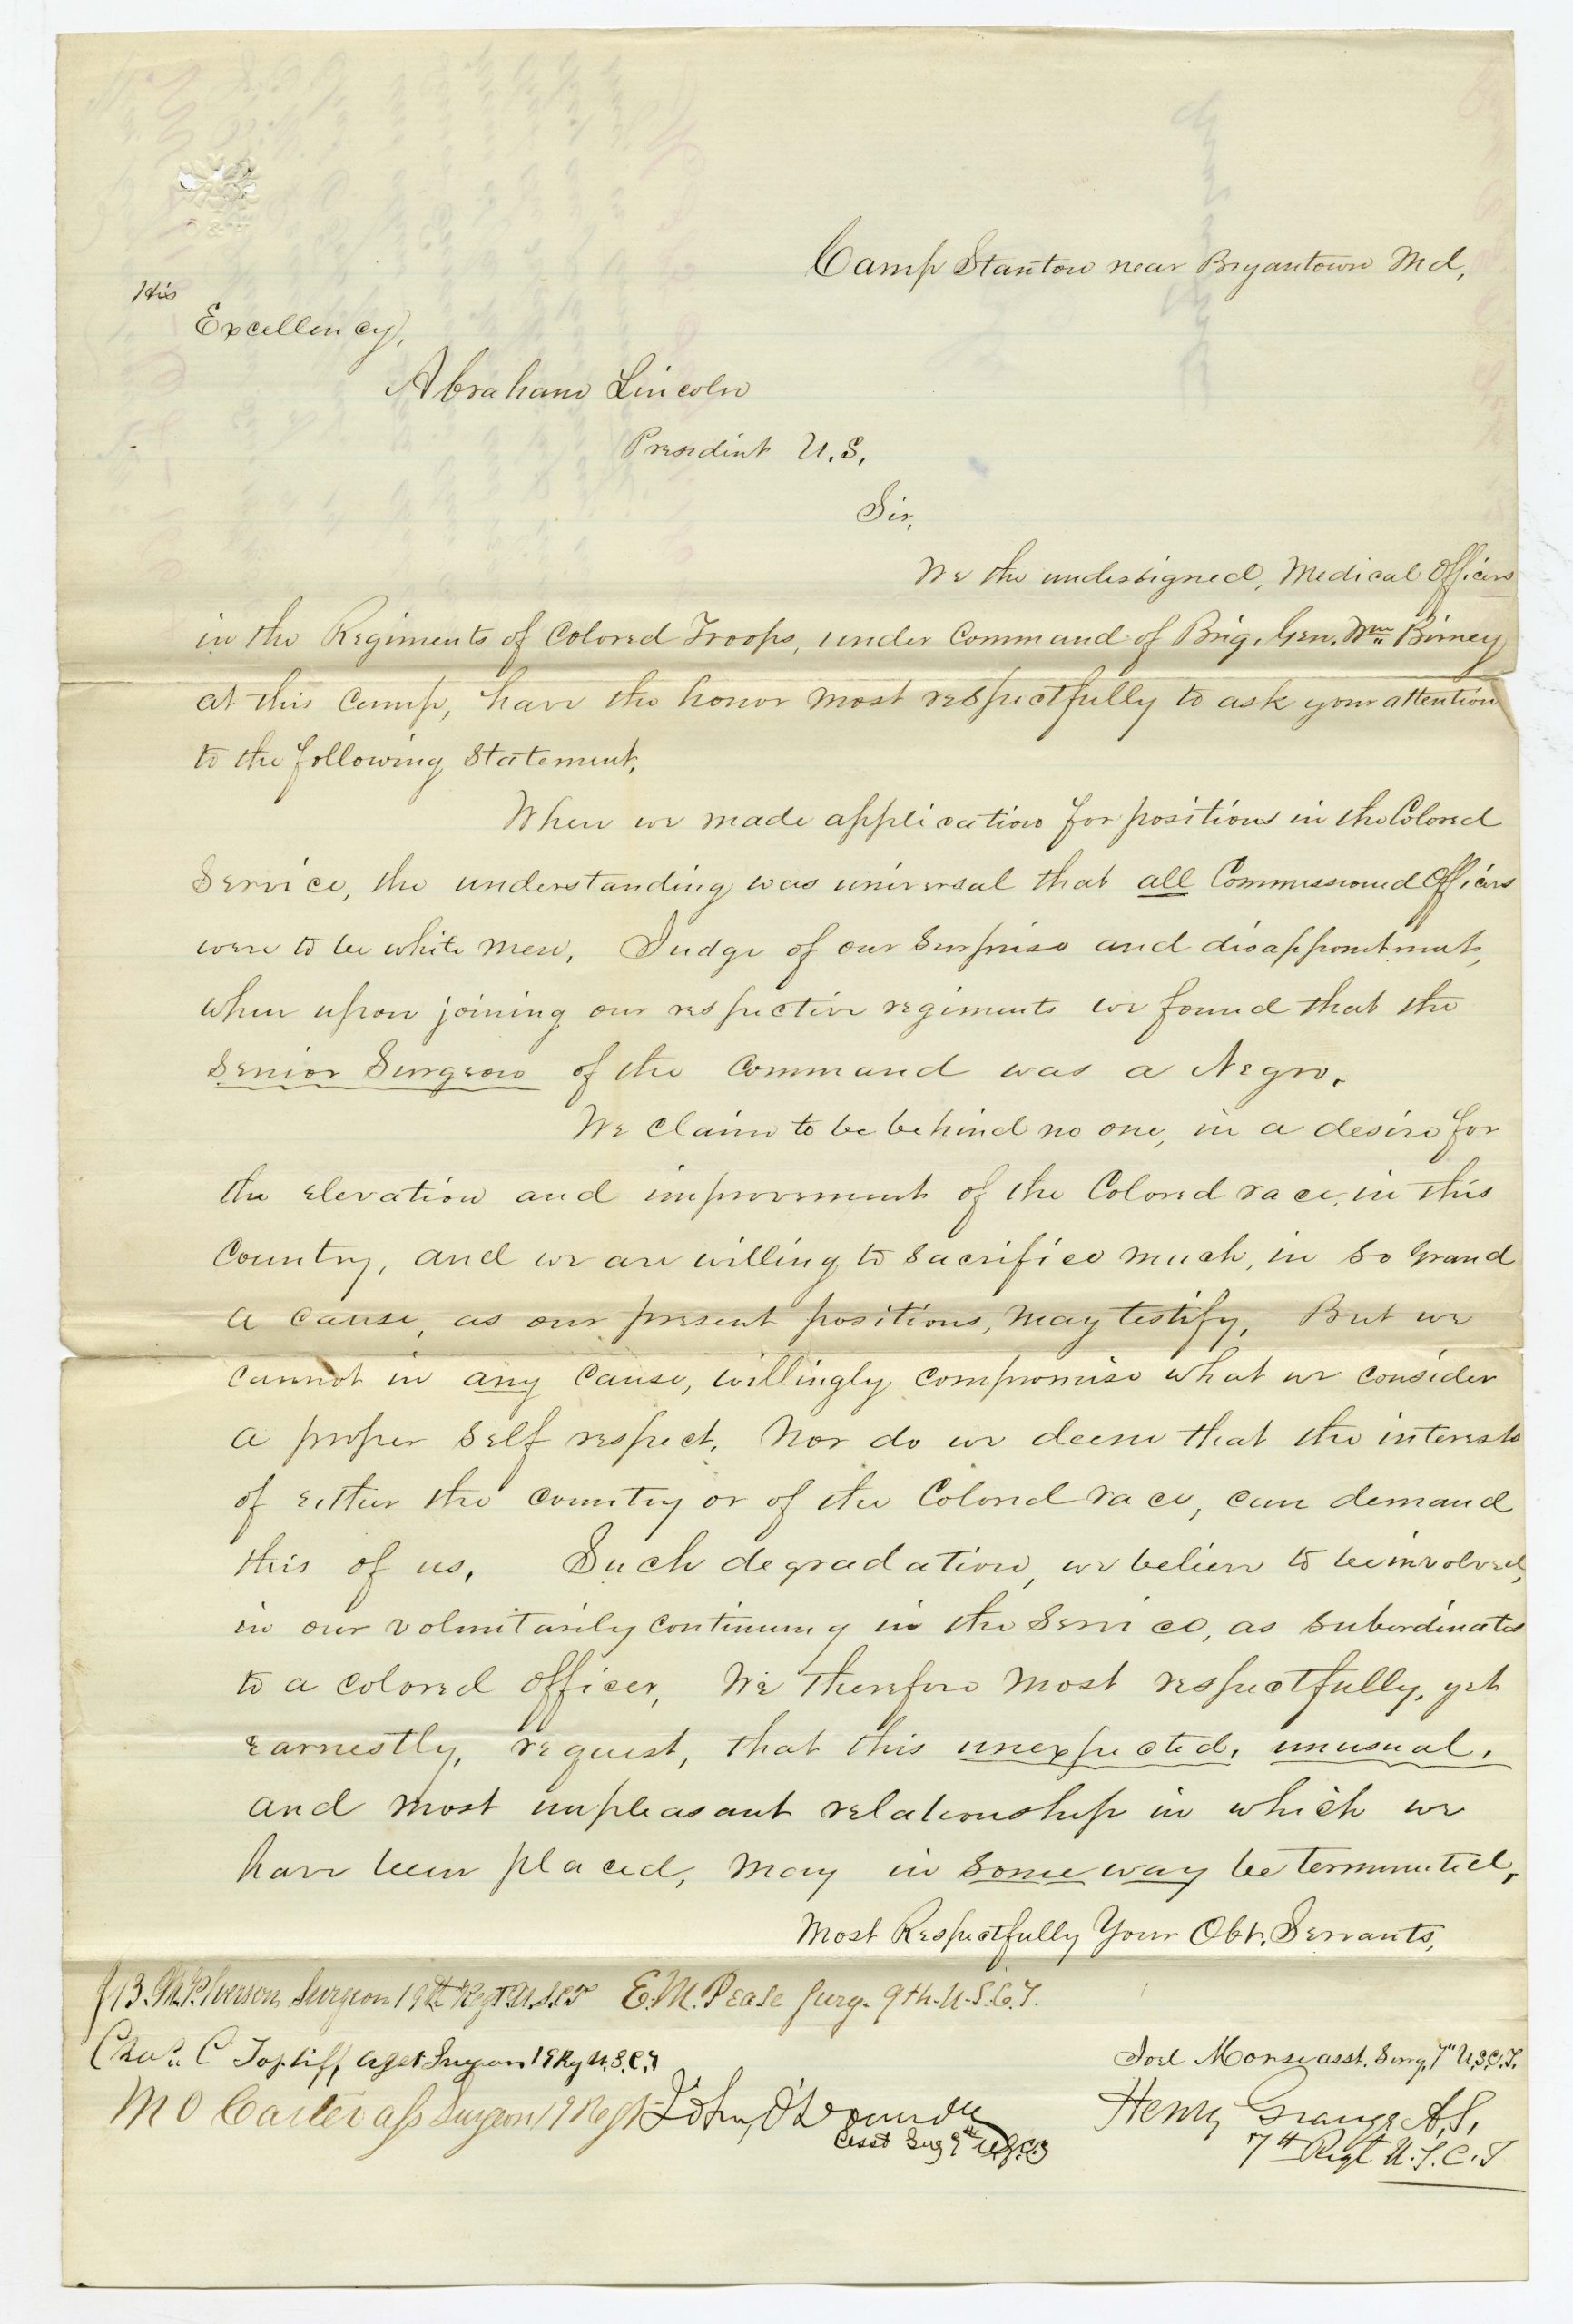 Camp Stanton near Bryantown Md,
His
Excellency,
Abraham Lincoln
President U.S,
Sir,
We the undersigned, Medical Officers
in the Regiments of Colored Troops, under Command of Brig. Gen. Wm Birney
at this Camp, have the honor most respectfully to ask your attention
to the following Statement,
When we made application for positions in the Colored
Service, the understanding was universal that all Commissioned Officers
were to be white men, Judge of our Surprise and disappointment,
when upon joining our respective regiments we found that the
Senior Surgeon of the Command was a Negro.
We Claim to be behind no one, in a desire for
the elevation and improvement of the Colored race, in this
Country, and we are willing to sacrifice much, in so grand
a cause, as our present positions, may testify, But we
cannot in any cause, willingly compromise what we consider
a proper self respect, Nor do we deem that the interests
of either the country or of the Colored race, can demand
this of us, Such degradation, we believe to be involved,
in our voluntarily continuing in the Service, as subordinates
to a colored officer, We therefore most respectfully, yet
earnestly, request, that this unexpected, unusual,
and most unpleasant relationship in which we
have been placed, may in some way be terminated,
Most Respectfully Your Obt. Servants,
J B. McPherson Surgeon 19th Regt U.S.C.T E.M. Pease Surg. 9th. U.S.C.T.
Chas. C Topliff, Asst Surgeon 19 Rg U.S.C.T
Joel Morse asst. Surg, 7" U.S.C.T.
M O Carter ass Surgeon 19 Regt
John, O'Donnell
Asst Surg 9th U.S.C.T
Henry Grange A.S,
7th Regt U.S.C.T